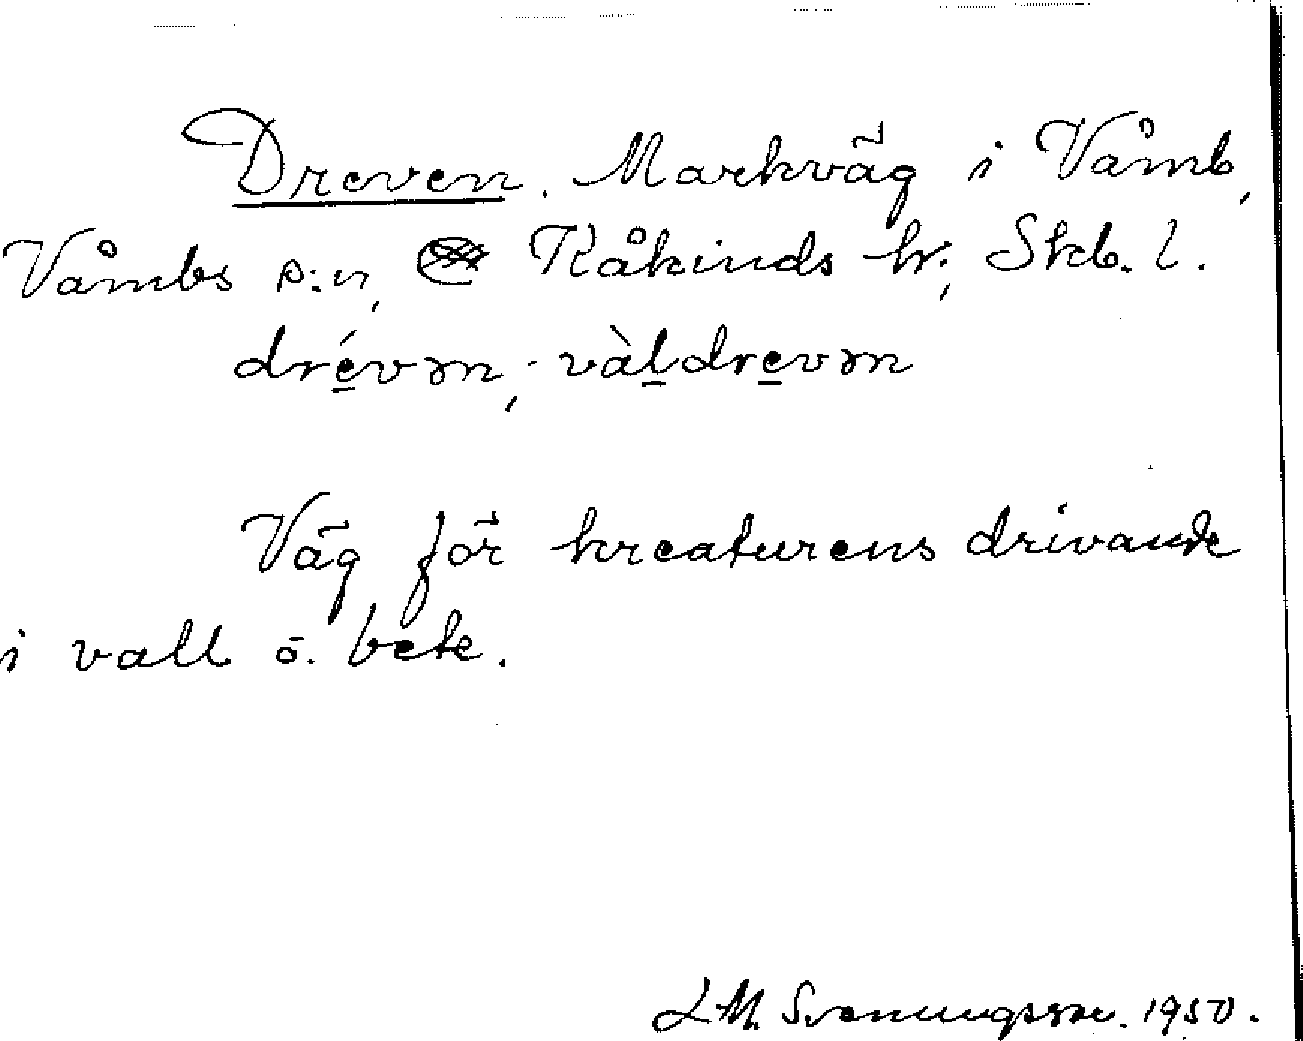 Dreven. Markväg i Våmb,
Våmbs s:n, Kåkinds hr; Skb. l.
drévən, vàldrevən
Väg för kreaturens drivande
i vall o. bete.
LM. Svenungsson. 1950.